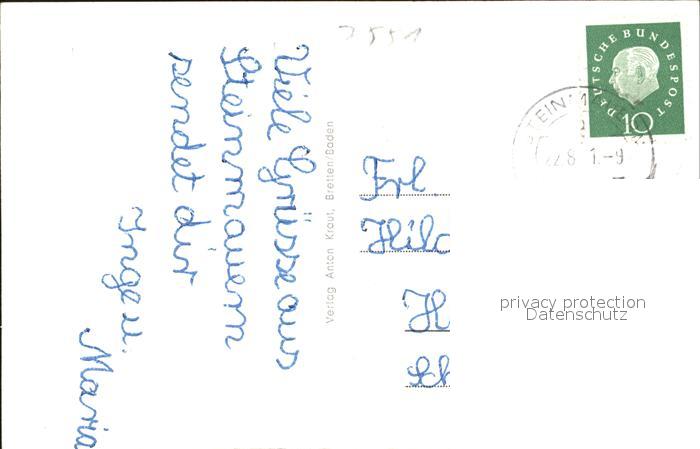 2551
Viele Grüsse aus
Steinmauern
sendet dir
Inge u.
Maria
Verlag Anton Kraut, Bretten/Baden
Frl.
Hild
H
Sch
DEUTSCHE BUNDESPOST
10
STEINM
22.8 1.-9
privacy protection
Datenschutz